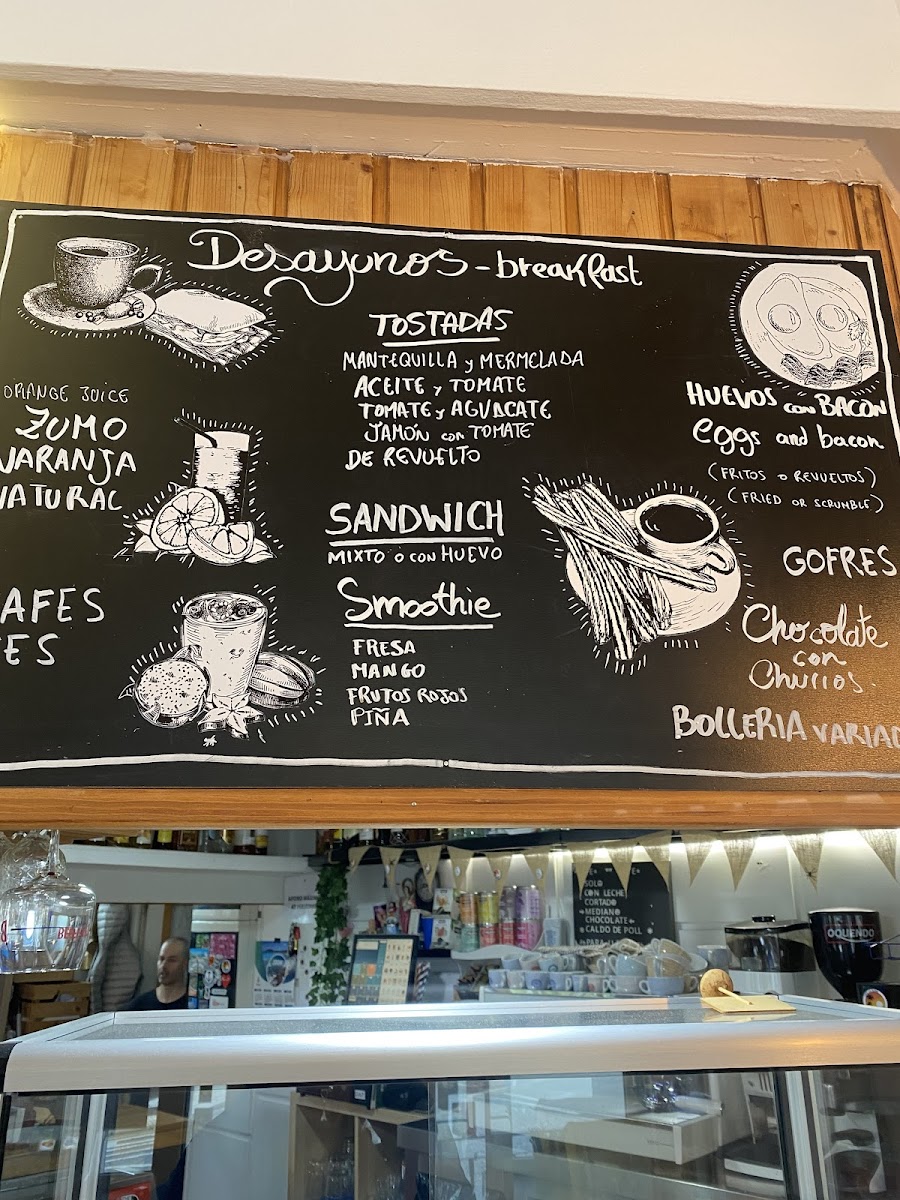 Desayunos - breakfast
ORANGE JUICE
ZUMO
NARANJA
NATURAL
AFES
ES
TOSTADAS
MANTEQUILLA y MERMELADA
ACEITE y TOMATE
TOMATE y AGUACATE
JAMÓN con TOMATE
DE REVUELTO
SANDWICH
MIXTO o con HUEVO
Smoothie
FRESA
MANGO
FRUTOS ROJOS
PIÑA
HUEVOS con BACON
eggs and bacon
(FRITOS o REVUELTOS)
(FRIED OR SCRUMBLE)
GOFRES
Chocolate
con
Churros.
BOLLERIA VARIAD
SOLO
CON LECHE
CORTADO
MEDIANO
CHOCOLATE
CALDO DE POLL
OQUENDO